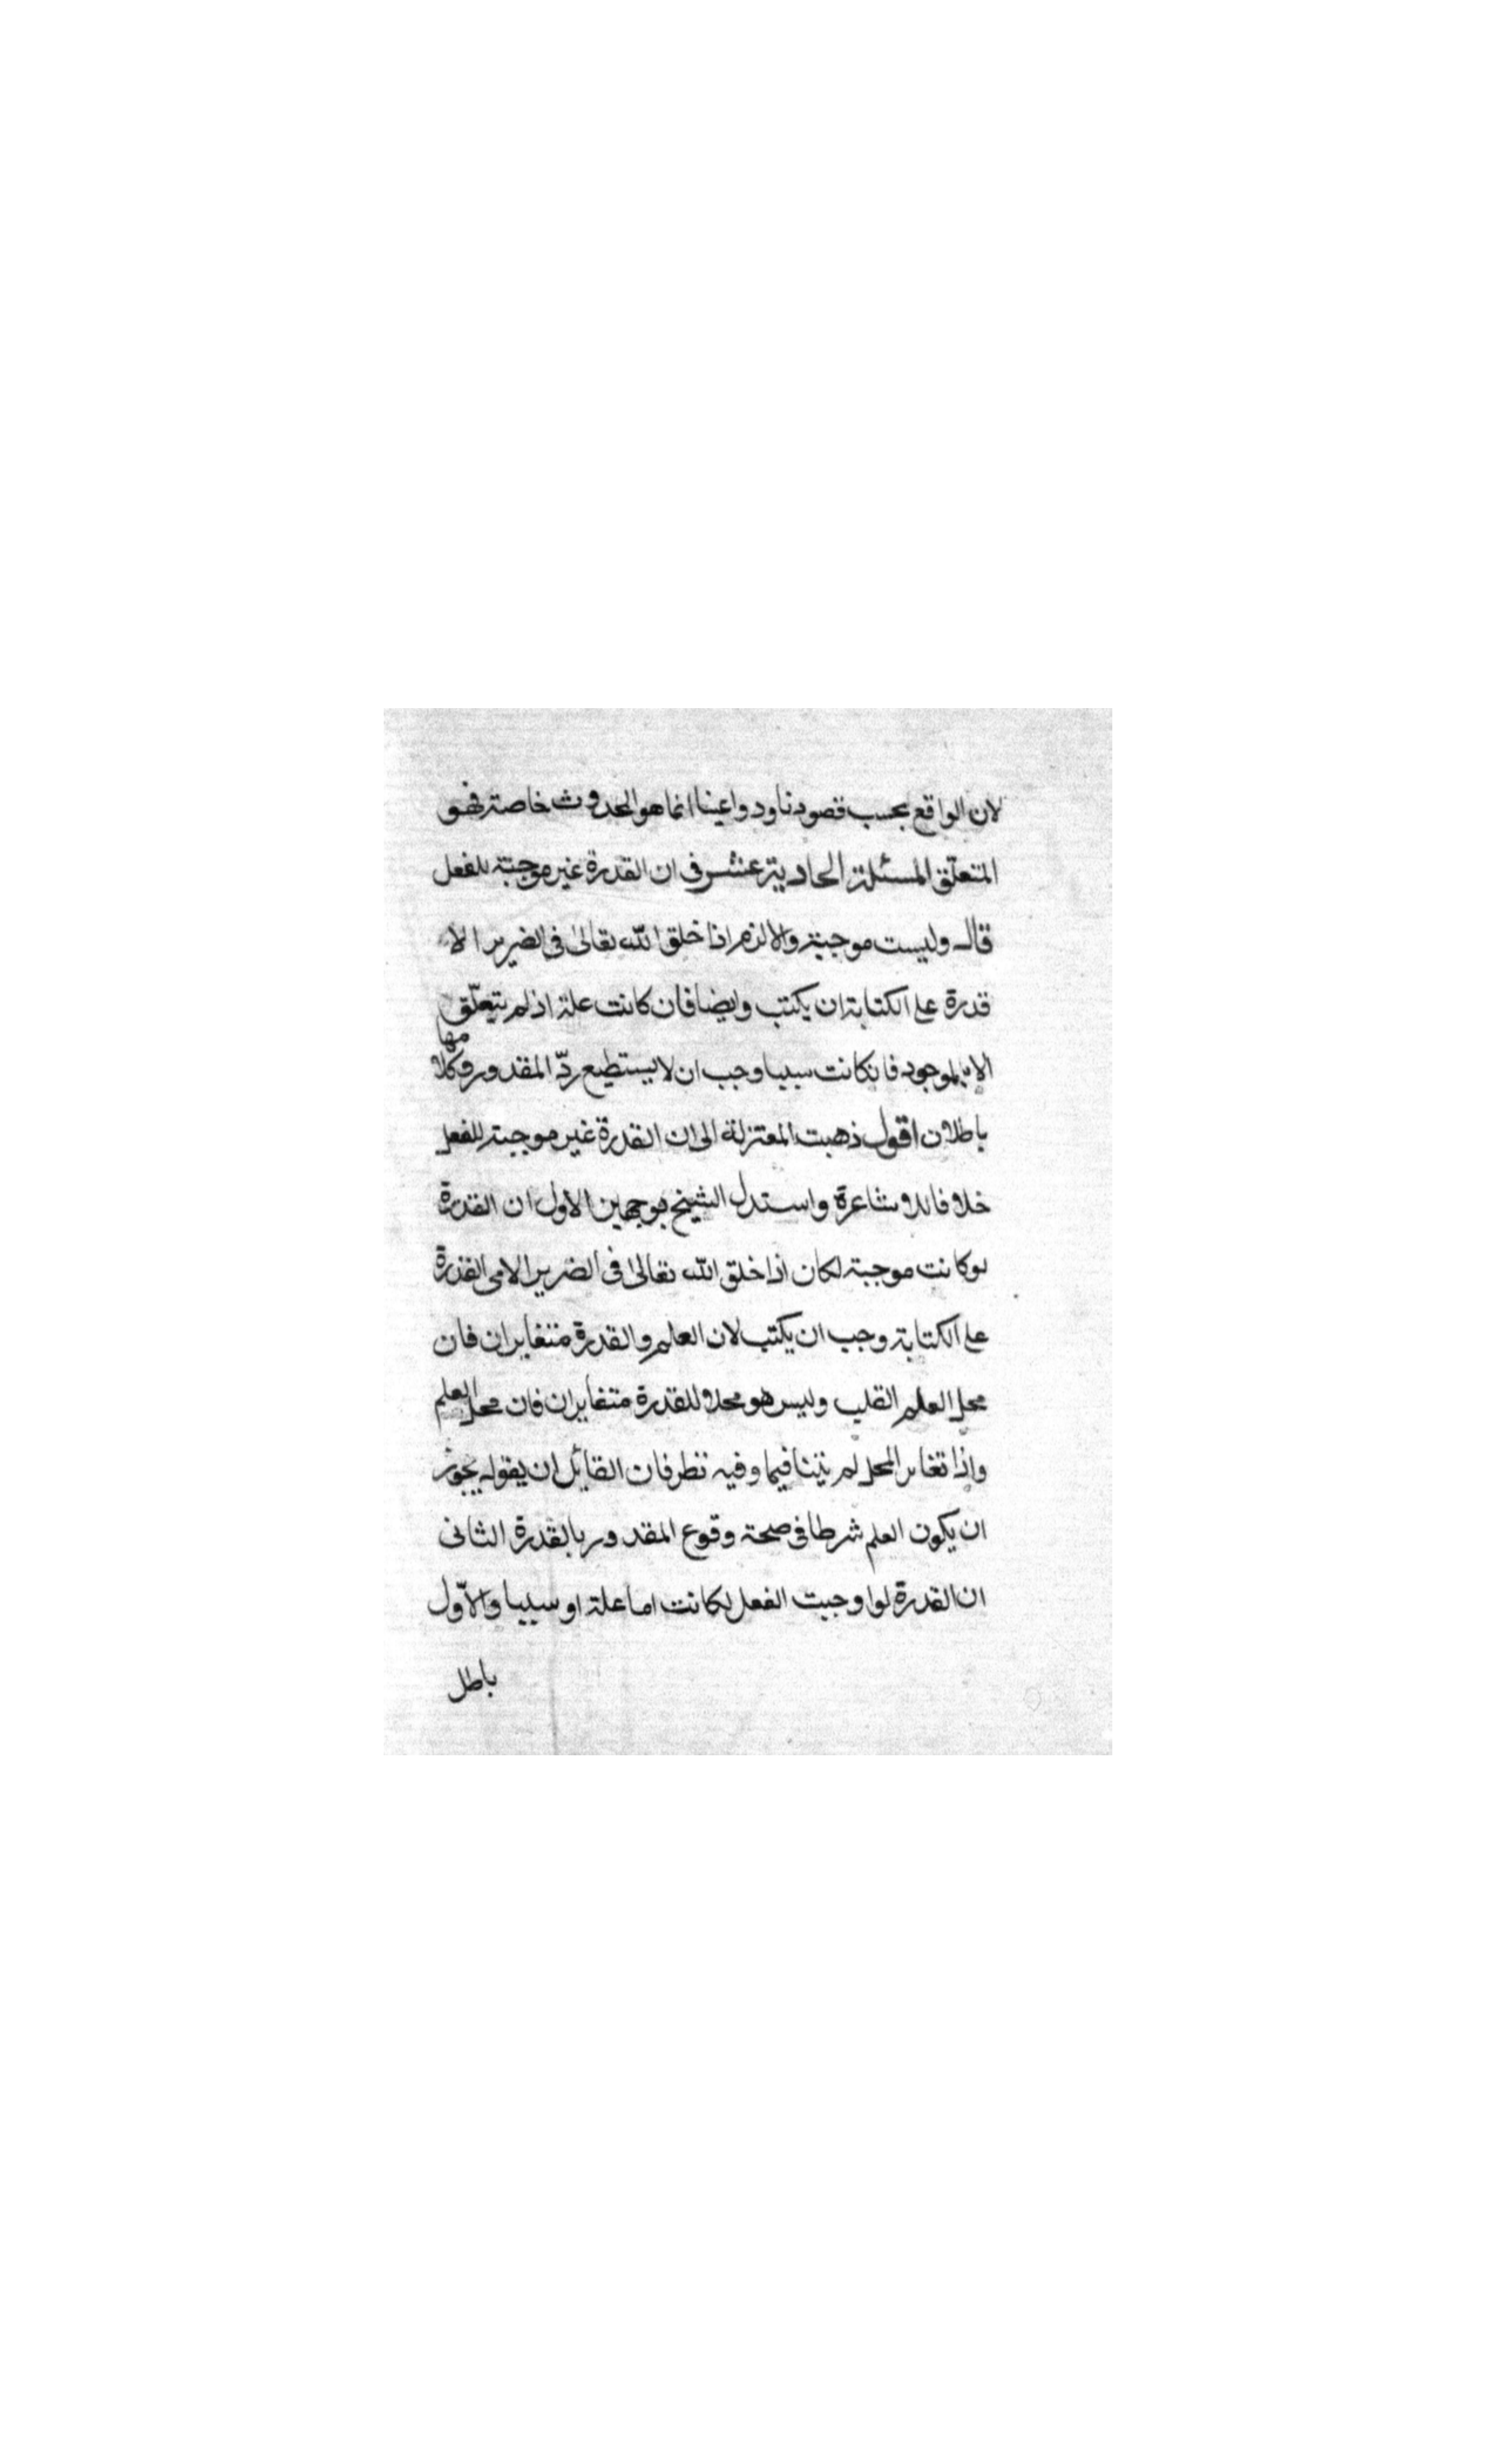 لان الواقع بحسب قصودنا ودواعينا انما هو الحدوث خاصة فهو
المتعلّق المسئلة الحادية عشر في ان القدرة غير موجبة للفعل
قال وليست موجبة والا لزم اذا خلق الله تعالى في الضرير الا
قدرة على الكتابة ان يكتب وايضا فان كانت علة اذ لم يتعلّق
الا بالموجود فانكانت سببا وجب ان لا يستطيع ردّ المقدور وكلاهما
باطلان اقول ذهبت المعتزلة الى ان القدرة غير موجبة للفعل
خلافا للاشاعرة واستدل الشيخ بوجهين الاول ان القدرة
لو كانت موجبة لكان اذا خلق الله تعالى في الضرير الامي القدرة
على الكتابة وجب ان يكتب لان العلم والقدرة متغايران فان
محل العلم القلب وليس هو محلا للقدرة متغايران فان محل العلم
واذا تغاير المحل لم يتنافيا وفيه نظر فان القائل ان يقول يجوز
ان يكون العلم شرطا في صحة وقوع المقدور بالقدرة الثاني
ان القدرة لو اوجبت الفعل لكانت اما علة او سببا والاوّل
باطل